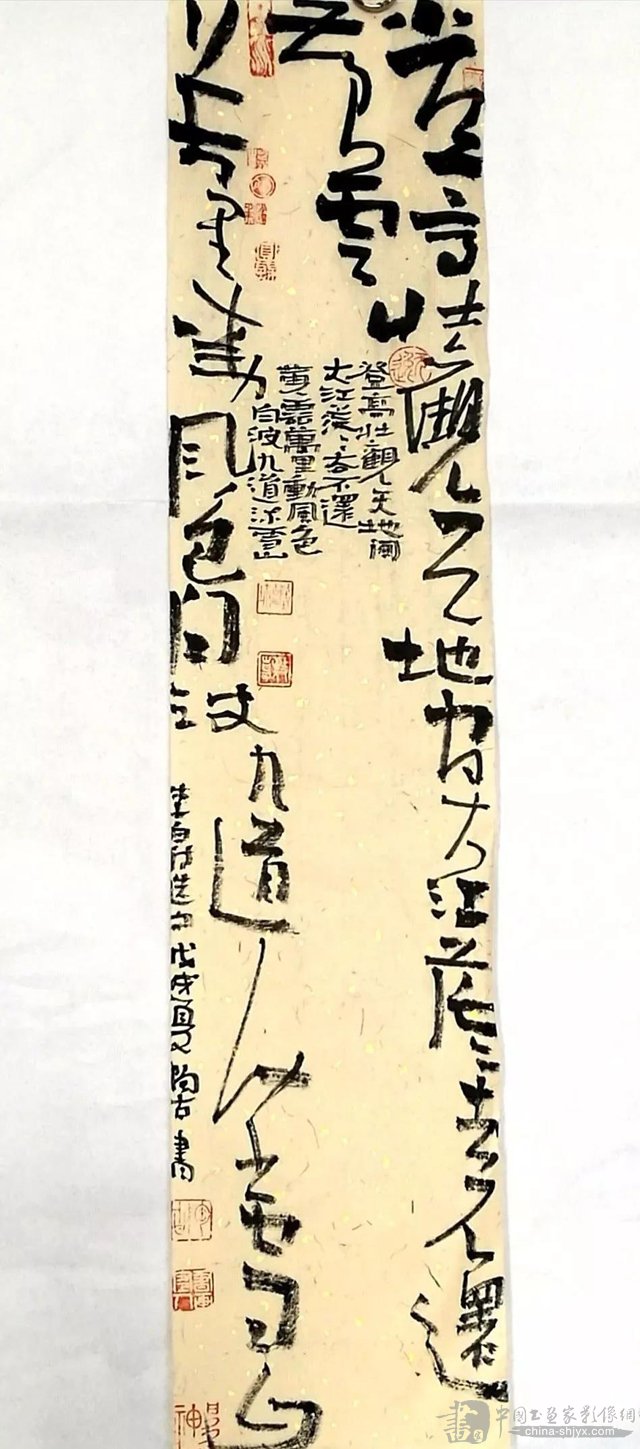 登高壮觀天地间大江茫〻去不還
黄雲
登高壮觀天地间
大江茫〻去不還
黄雲萬里動風色
白波九道流雪山
万里動風色白波九道流雪山
李白詩選句戊戌夏陶古書
神
書
中國书画家影像網
china-shjyx.com